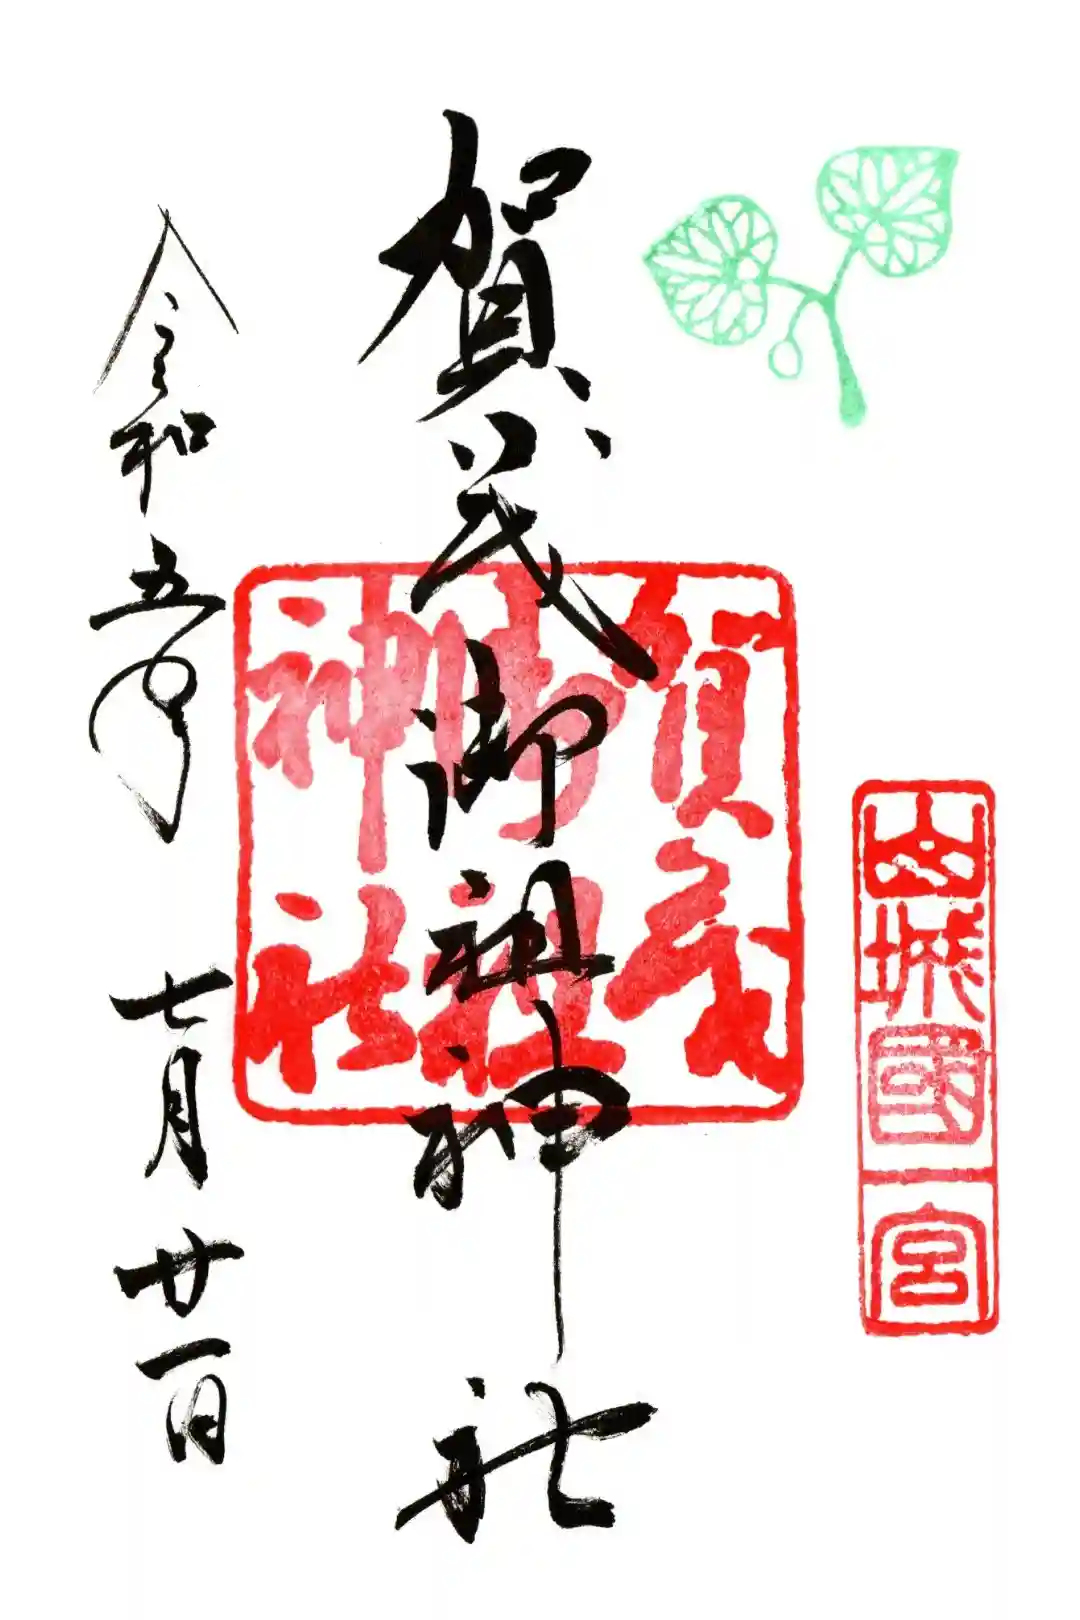 山城國一宮
賀茂御祖神社
賀茂御祖神社
令和五年七月廿一日